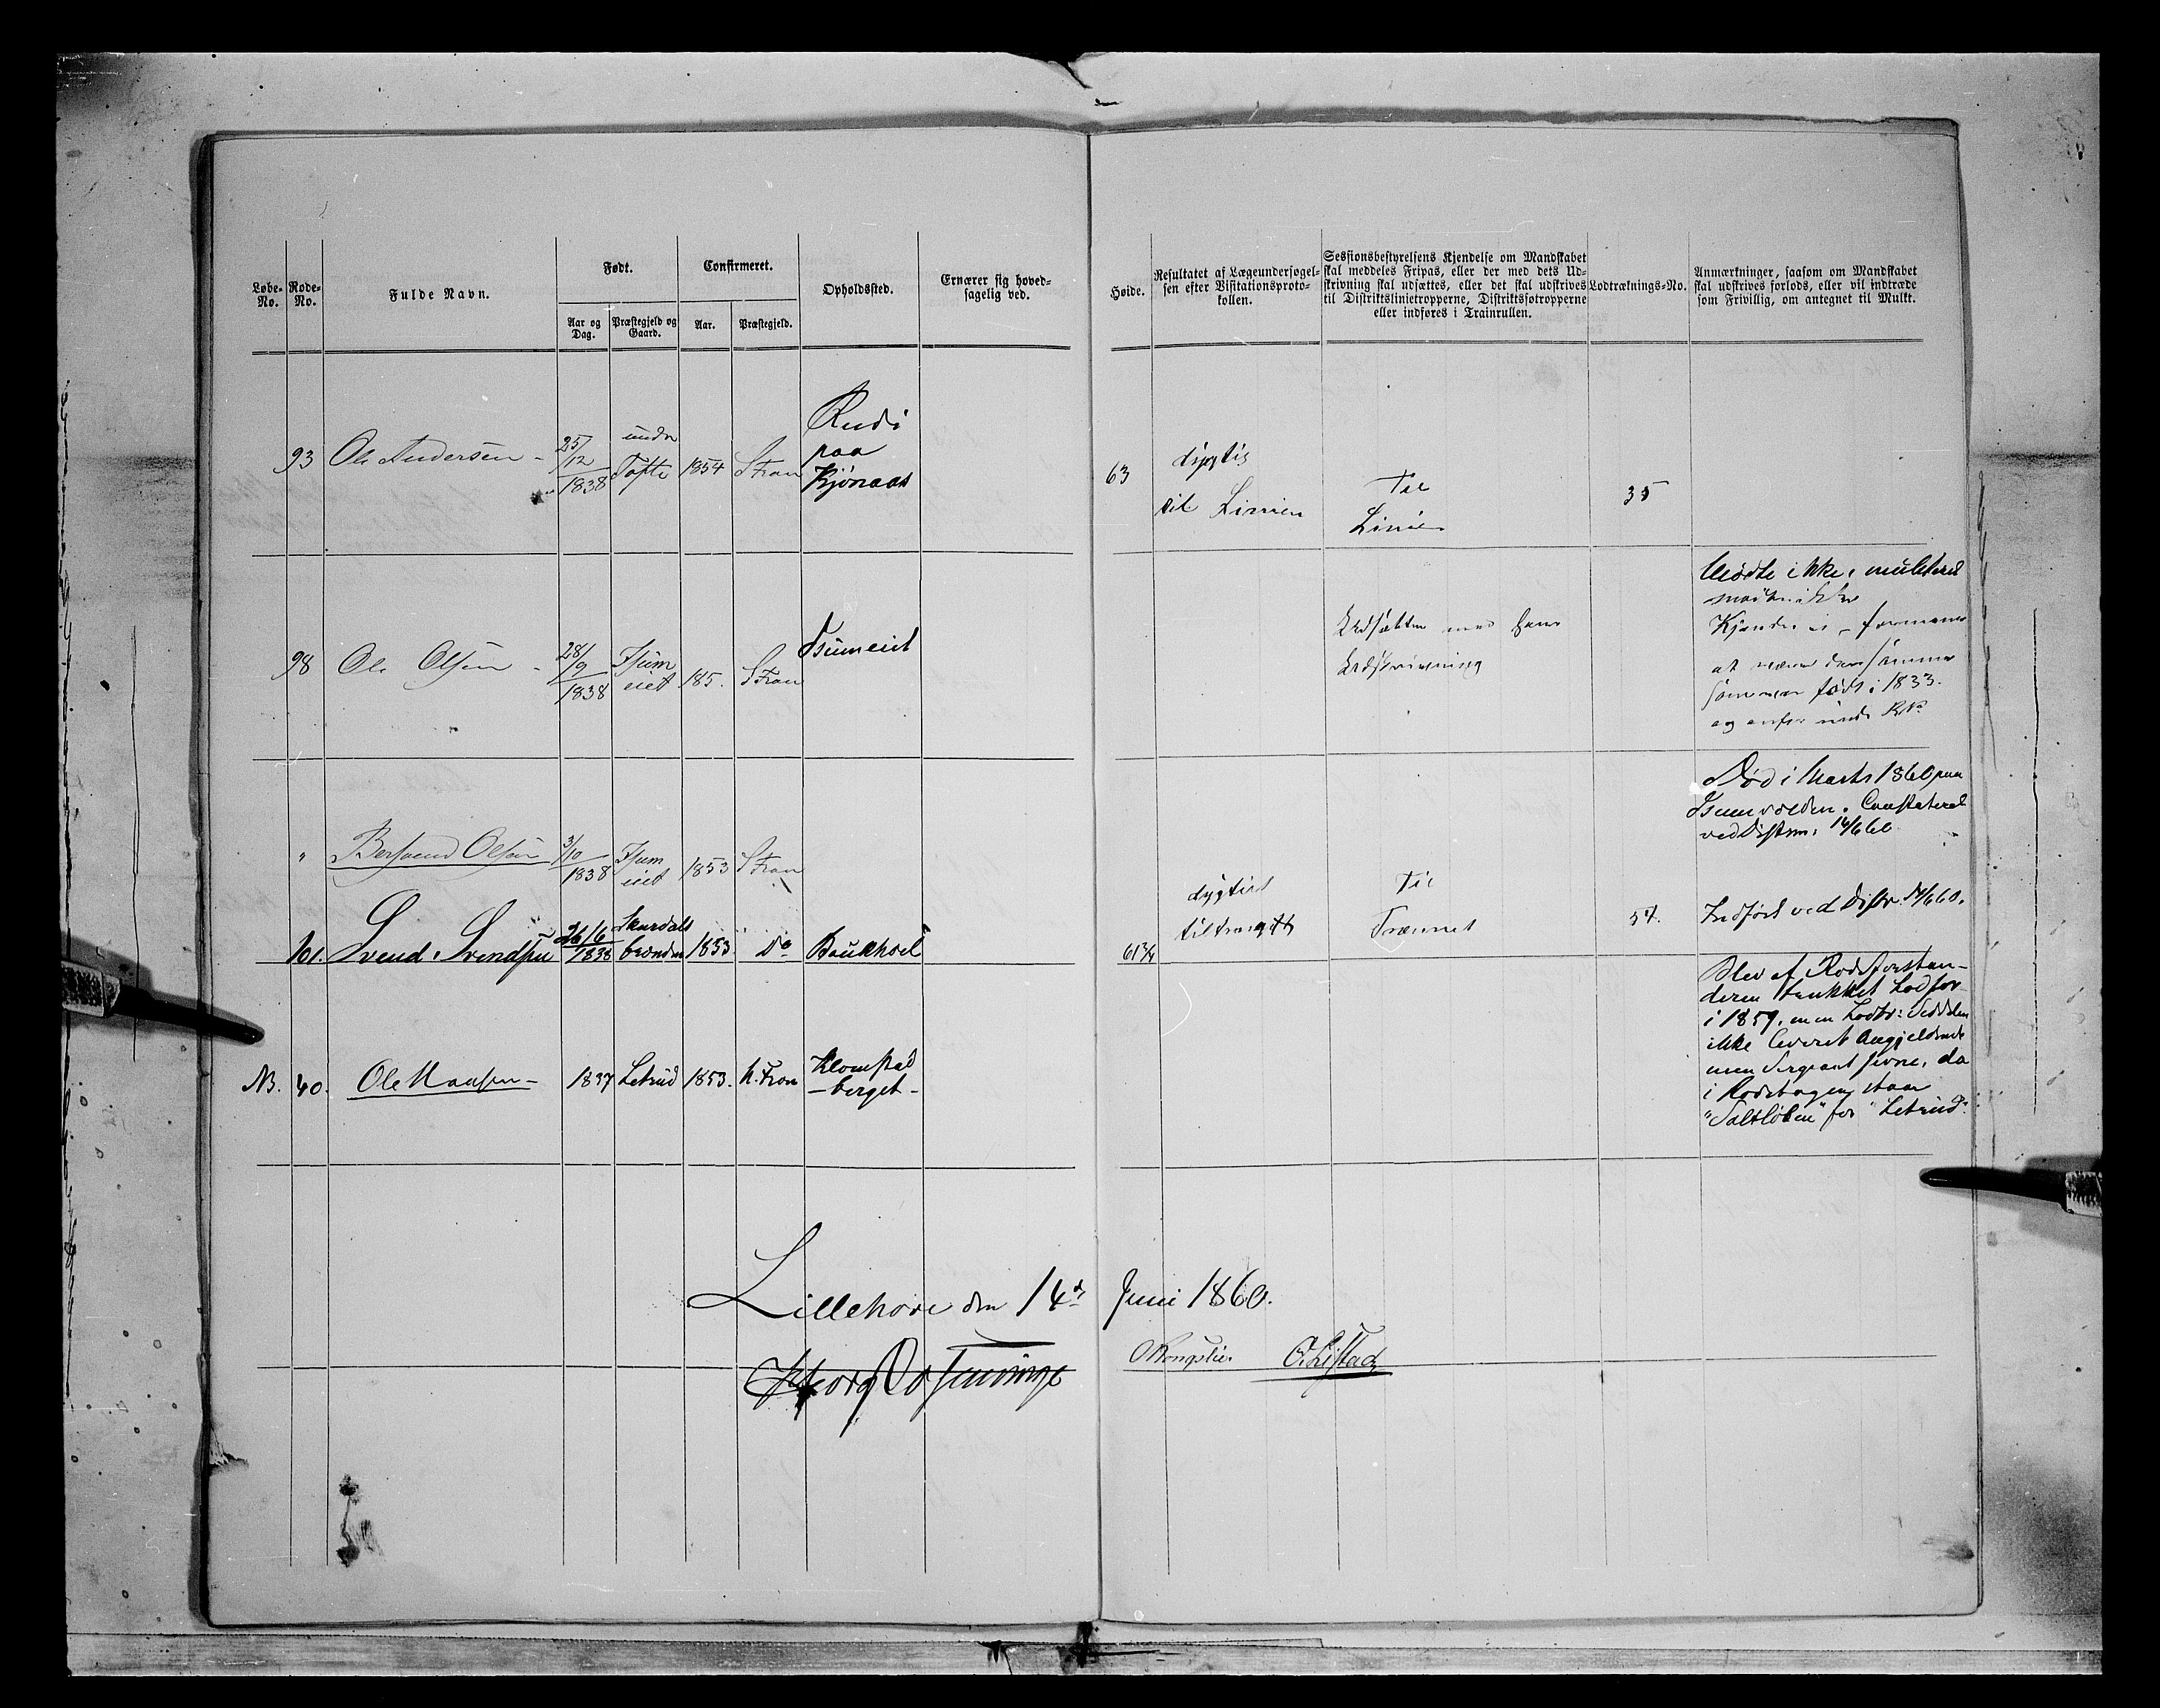 Løbe-No.
Rode-No.
Fulde Navn.
Født.
Aar og Dag.
Præstegjeld og Gaard.
Confirmeret.
Aar.
Præstegjeld.
Opholdssted.
Ernærer sig hoved-
sagelig ved.
Høide.
Resultatet af Lægeundersøgel-
sen efter Visitationsproto-
kollen.
Sessionsbestyrelsens Kjendelse om Mandskabet
skal meddeles Fripas, eller der med dets Ud-
skrivning skal udsættes, eller det skal udskrives
til Distriktslinietropperne, Distriktsfotropperne
eller indføres i Trainrullen.
Lodtræknings-No.
Anmærkninger, saasom om Mandskabet
skal udskrives forlods, eller vil indtræde
som Frivillig, om antegnet til Mulkt.
93 Ole Andersen - 25/12 1838 under Tofte 1854 S Fron Rudi
paa
Kjønaas
63 dygtig
til Linien
Til
Linien
35
98 Ole Olsen - 28/9 1838 Isum eiet 185. S Fron Isumeiet
Udsættes med hans
Udskrivning
Mødte ikke, mulkteret
at være den samme
som er født i 1833.
" Bersvend Olsen 3/10 1838 Isum eiet 1853 S Fron
Død i Marts 1860 paa
Isumvolden. Constateret
ved 14/6 60
101. Svend Svendsen 26/6 1838 1853 Do
61 3/4 dygtig
til
Til
Trænnet
54.
Indført ved Distr. 14/6 60.
NB. 40. Ole Hansen - 1837 Letrud 1853. N. Fron Klomstad
- berget -
Blev af Rodeforstan-
deren trukket Lod for
i 1859. men Lodtr: Seddelen
ikke leveret Angjeldende
men Sergeant da
i Rodebogen staar
"Saltløken" for "Letrud".
Lillehove den 14de Juni 1860.
O. Listad